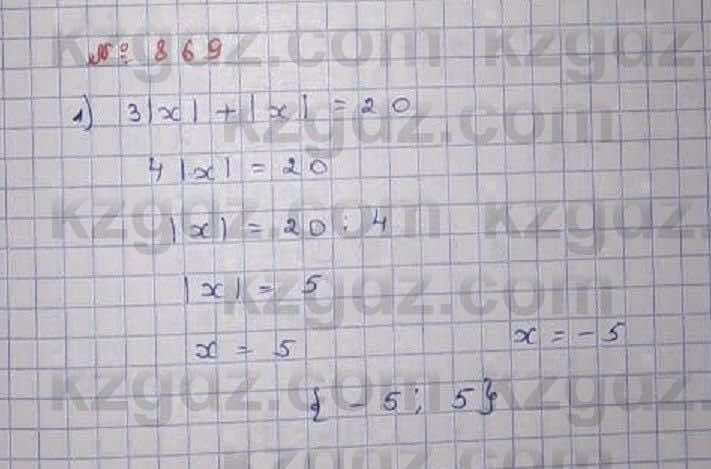 № 869
1) 3|x| + |x| = 20
4|x| = 20
|x| = 20 : 4
|x| = 5
x = 5 x = -5
{ -5; 5}
kzgdz.com kzgdz.
kzgdz.com
kzgdz.com kzgdz.
kzgdz.com
kzgdz.com kzgdz.
kzgdz.com